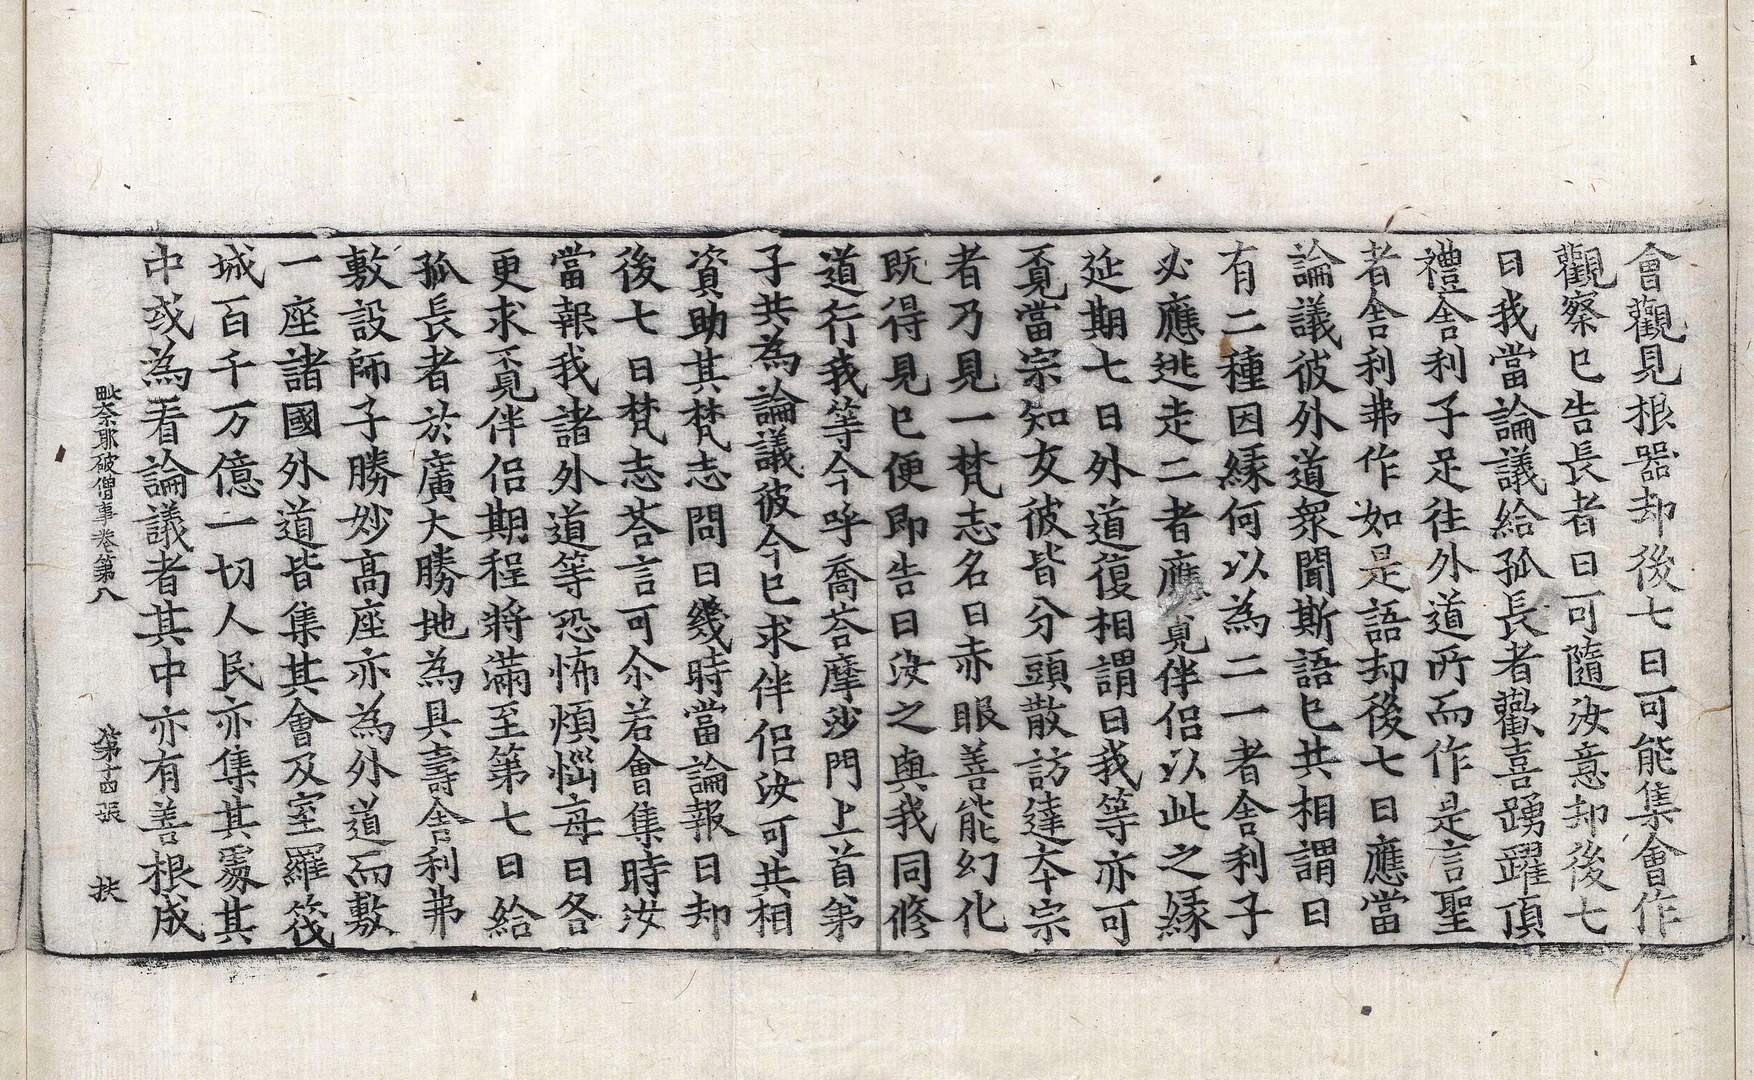 會觀見根器却後七日可能集會作
觀察已告長者曰可隨汝意却後七
日我當論議給孤長者歡喜踴躍頂
禮舍利子足往外道所而作是言聖
者舍利弗作如是語却後七日應當
論議彼外道衆聞斯語已共相謂曰
有二種因緣何以為二一者舍利子
必應逃走二者應覓伴侶以此之緣
延期七日外道復相謂曰我等亦可
覓當宗知友彼皆分頭散訪達夲宗
者乃見一梵志名曰赤眼善能幻化
既得見已便即告曰汝之與我同修
道行我等今呼喬荅摩沙門上首弟
子共為論議彼今已求伴侶汝可共相
資助其梵志問曰幾時當論報曰却
後七日梵志荅言可尒若會集時汝
當報我諸外道等恐怖煩惱每日各
更求不見伴侶期程將滿至第七日給
孤長者於廣大勝地為具壽舍利弗
敷設師子勝妙高座亦為外道而敷
一座諸國外道皆集其會及室羅筏
城百千万億一切人民亦集其處其
中或為看論議者其中亦有善根成
毗奈耶破僧事卷第八 第十四張 扶